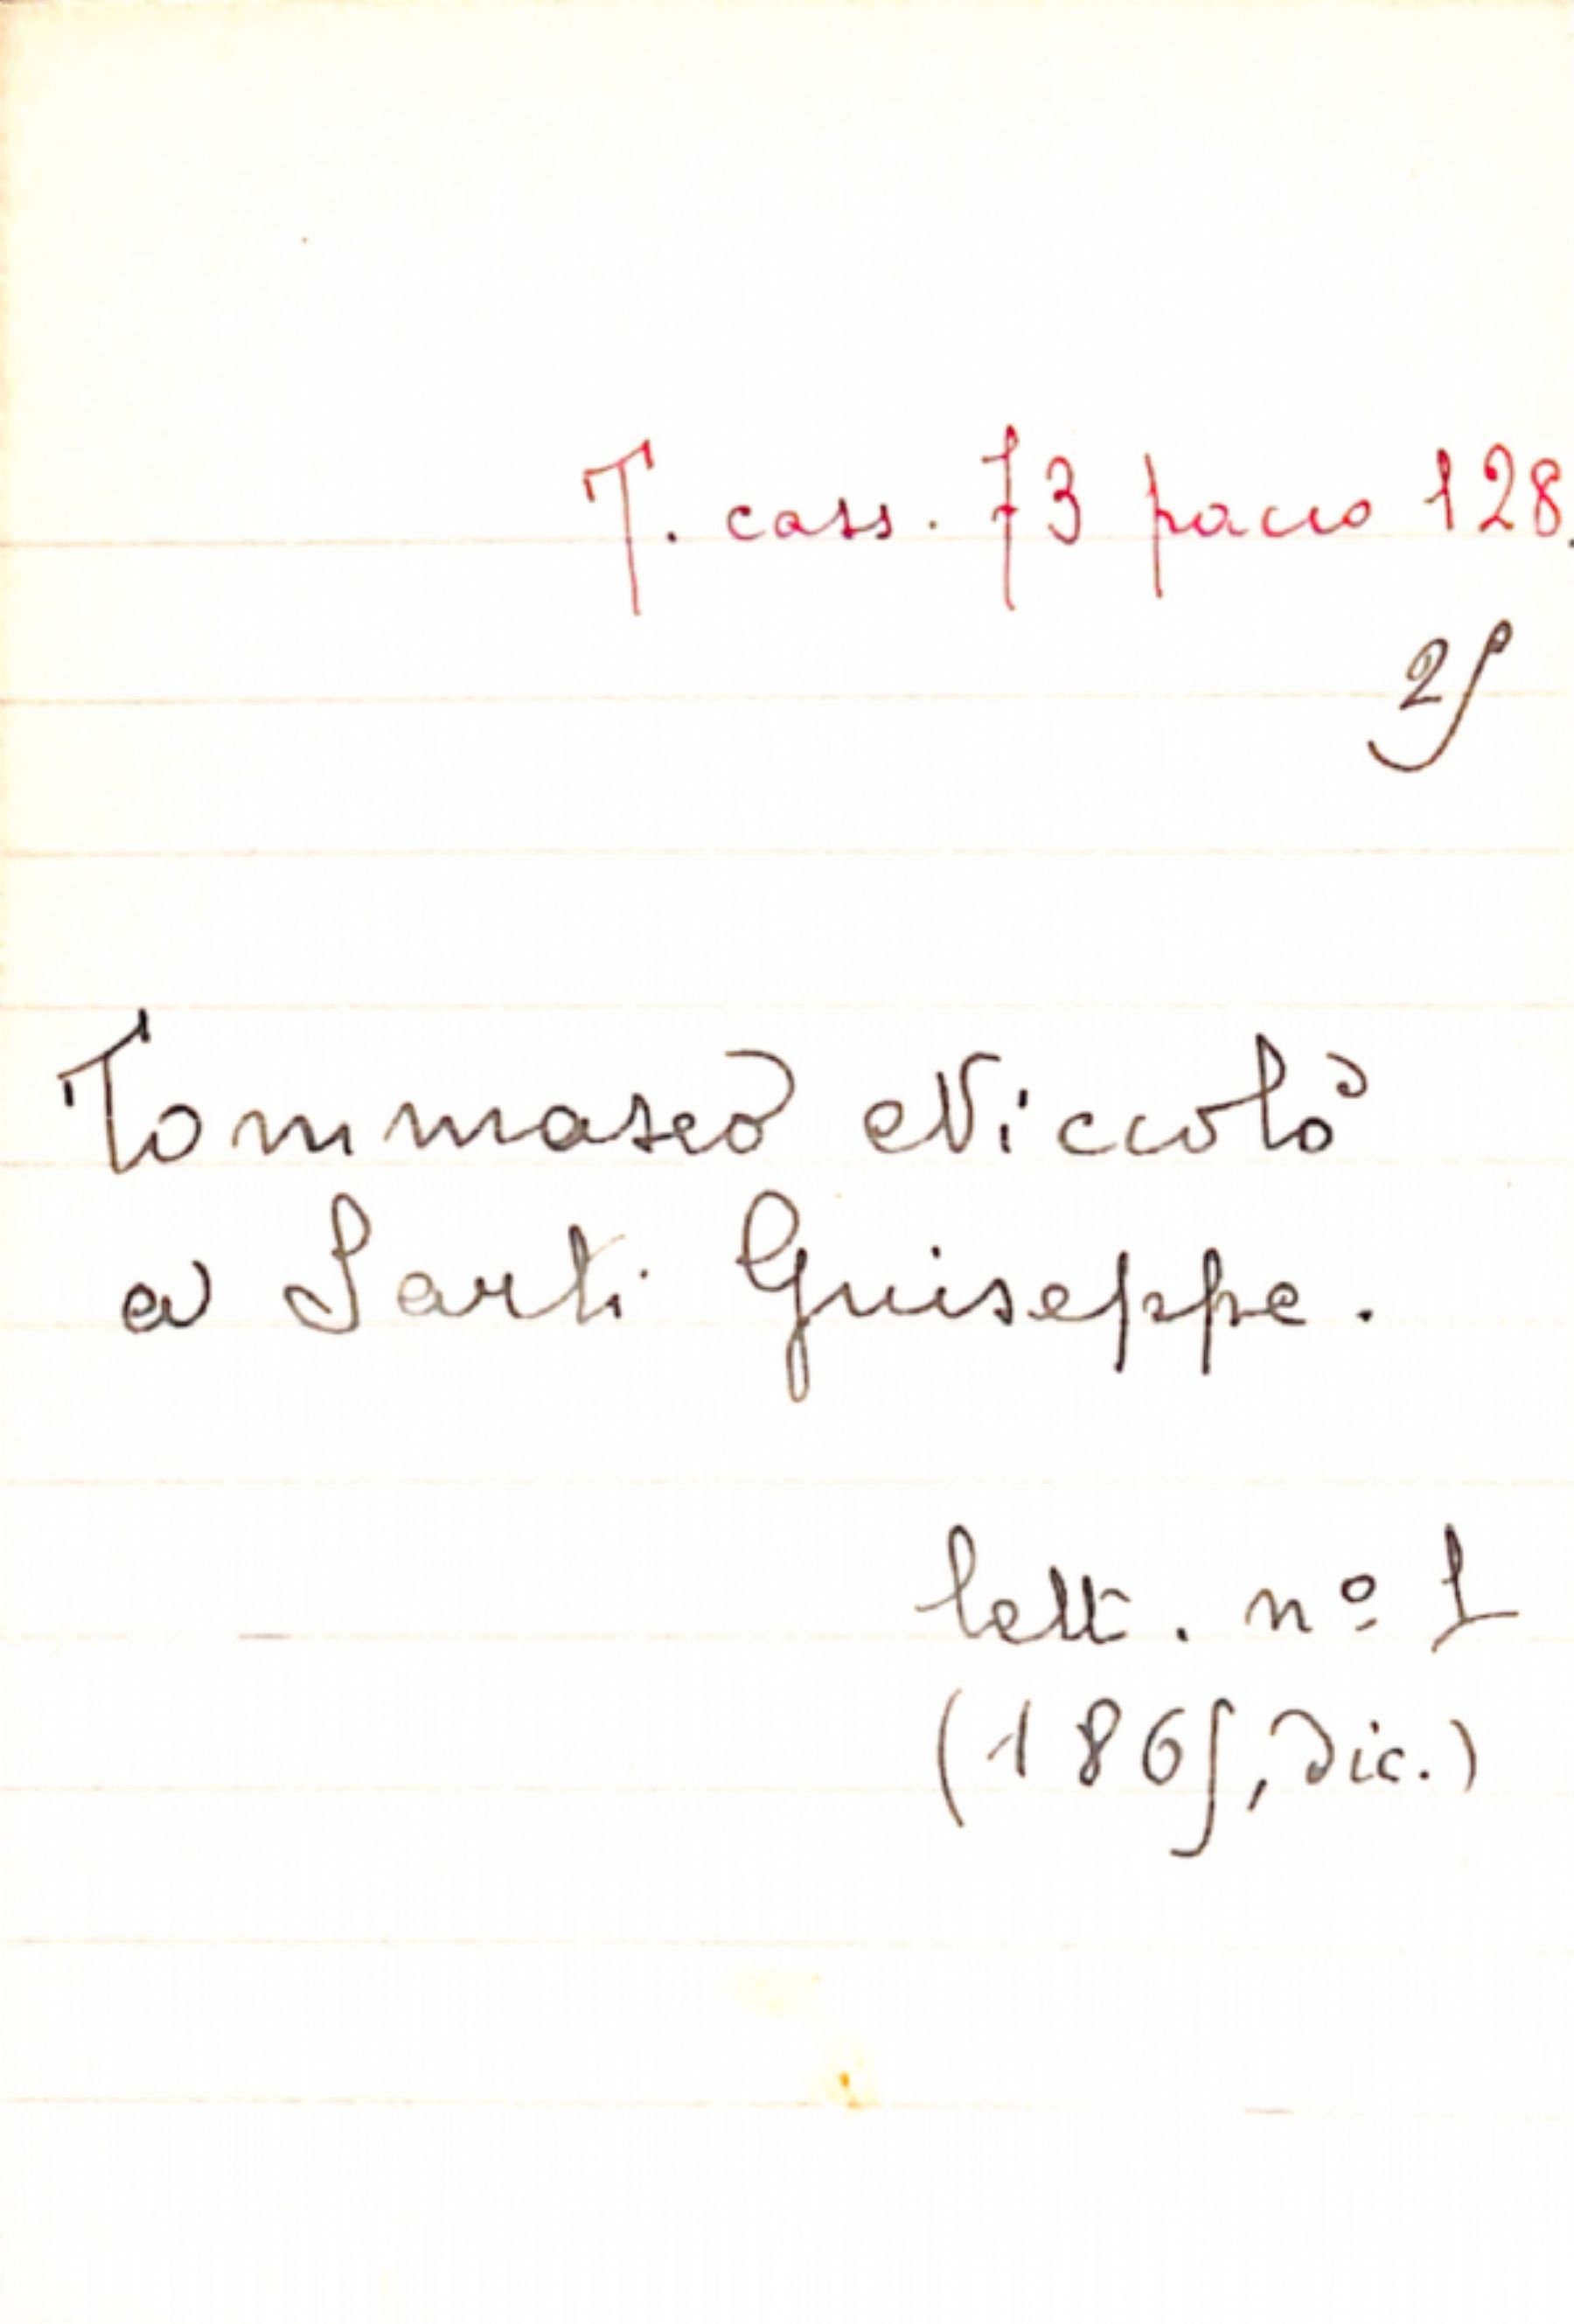 T. cass. 73 pacco 128.
25
Tommaseo Niccolò
a Sarti Giuseppe.
lett. nº 1
(1865, dic.)